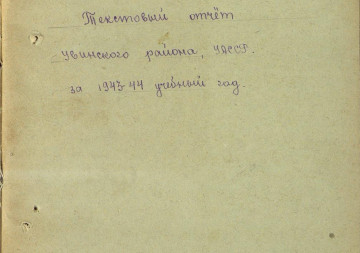 Текстовый отчёт
Увинского района, УАССР.
за 1943-44 учебный год.